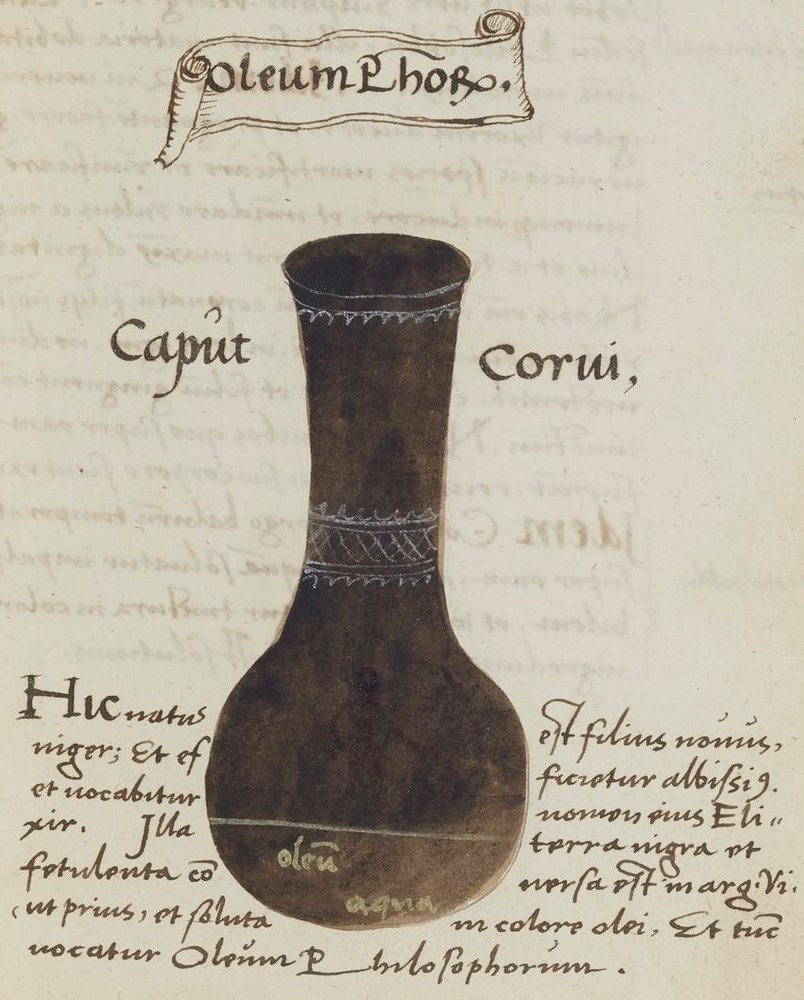 Oleum Phorꝝ.
Capût Corui,
Hic natus est filius nouus,
niger; Et ef ficietur albissiꝯ.
et uocabitur nomen eius Eli„
xir. Illa terra nigra et
fetulenta cō uersa est in arg: Vi.
ut prius, et soluta in colore olei, Et tūc
uocatur Oleum Philosophorum.
oleū
aqua